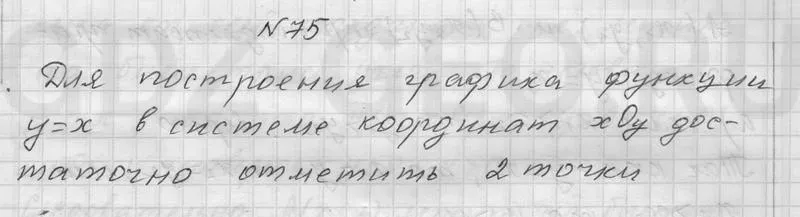 №75
Для построения графика функции
y=x в системе координат xOy дос-
таточно отметить 2 точки